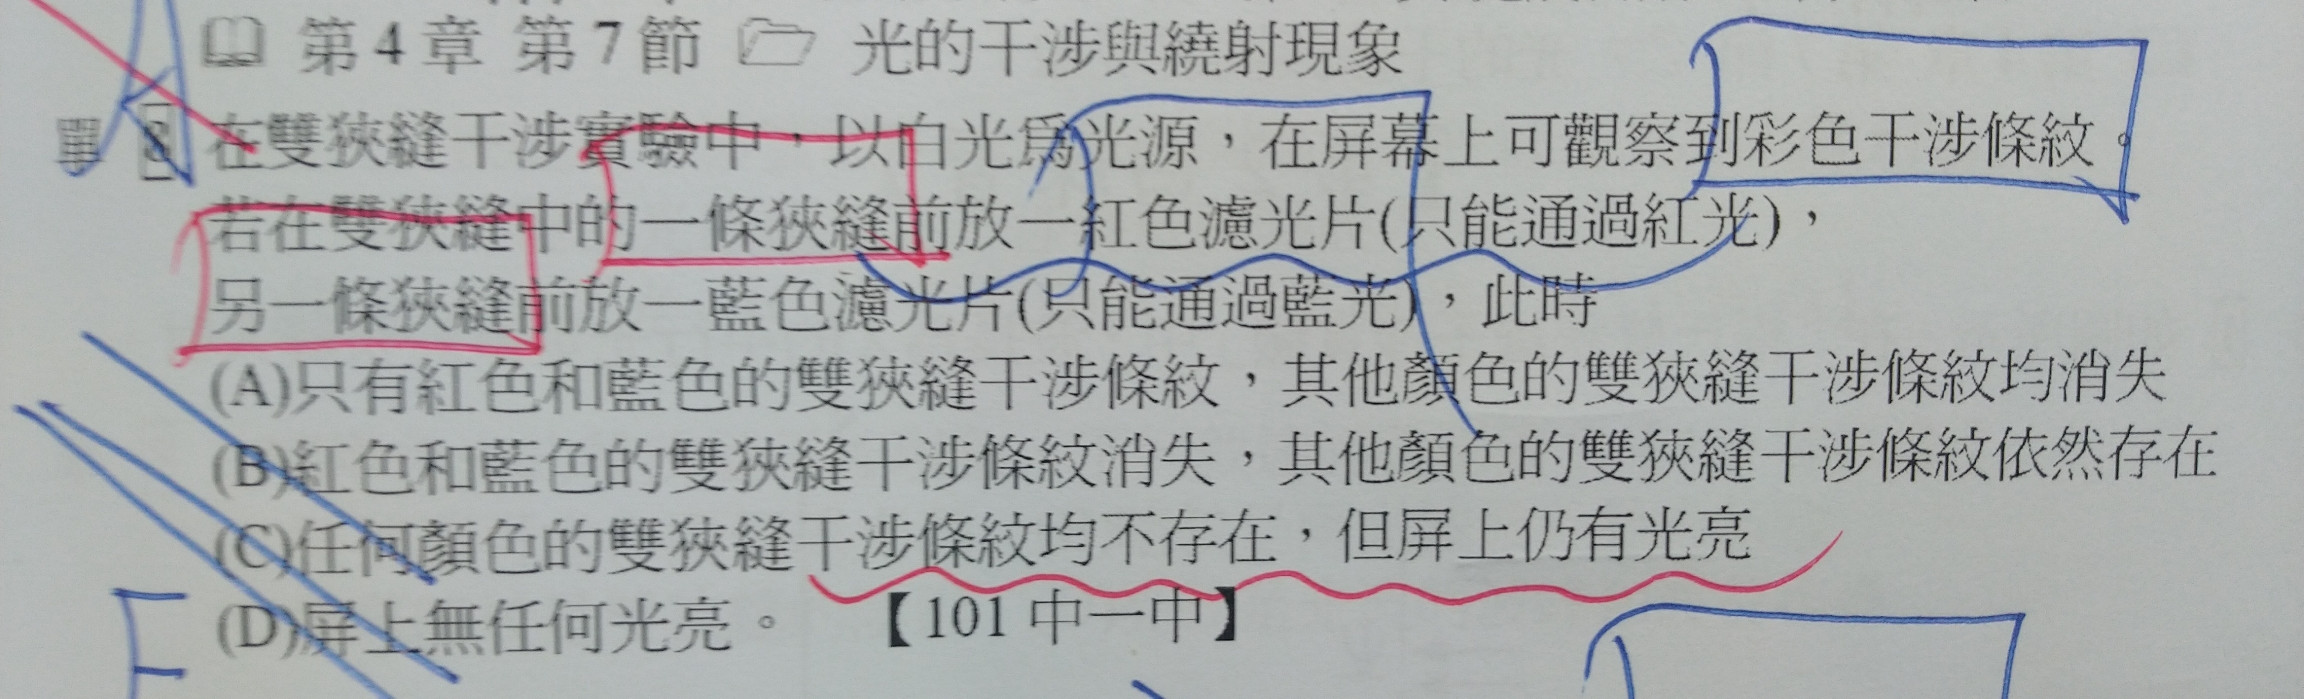 第 4 章 第 7 節 光的干涉與繞射現象
單 8 在雙狹縫干涉實驗中，以白光為光源，在屏幕上可觀察到彩色干涉條紋。
若在雙狹縫中的一條狹縫前放一紅色濾光片(只能通過紅光)，
另一條狹縫前放一藍色濾光片(只能通過藍光)，此時
(A)只有紅色和藍色的雙狹縫干涉條紋，其他顏色的雙狹縫干涉條紋均消失
(B)紅色和藍色的雙狹縫干涉條紋消失，其他顏色的雙狹縫干涉條紋依然存在
(C)任何顏色的雙狹縫干涉條紋均不存在，但屏上仍有光亮
(D)屏上無任何光亮。 【101 中一中】